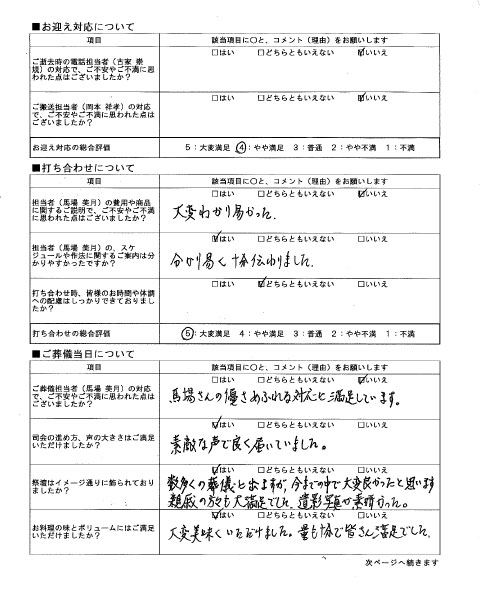 ■お迎え対応について
項目 該当項目に○と、コメント(理由)をお願いします
ご逝去時の電話担当者(古家 崇規)の対応で、ご不安やご不満に思われた点はございましたか? □はい □どちらともいえない ☑いいえ
ご搬送担当者(岡本 祥孝)の対応で、ご不安やご不満に思われた点はございましたか? □はい □どちらともいえない ☑いいえ
お迎え対応の総合評価 5:大変満足 ④:やや満足 3:普通 2:やや不満 1:不満
■打ち合わせについて
項目 該当項目に○と、コメント(理由)をお願いします
担当者(馬場 美月)の費用や商品に関するご説明で、ご不安やご不満に思われた点はございましたか? □はい □どちらともいえない ☑いいえ
大変わかり易かった.
担当者(馬場 美月)の、スケジュールや作法に関するご案内は分かりやすかったですか? ☑はい □どちらともいえない □いいえ
分かり易く十分伝わりました.
打ち合わせ時、皆様のお時間や体調への配慮はしっかりできておりましたか? □はい ☑どちらともいえない □いいえ
打ち合わせの総合評価 ⑤:大変満足 4:やや満足 3:普通 2:やや不満 1:不満
■ご葬儀当日について
項目 該当項目に○と、コメント(理由)をお願いします
ご葬儀担当者(馬場 美月)の対応で、ご不安やご不満に思われた点はございましたか? □はい □どちらともいえない ☑いいえ
馬場さんの優さあふれる対応に満足しています。
司会の進め方、声の大きさはご満足いただけましたか? ☑はい □どちらともいえない □いいえ
素敵な声で良く届いていました。
祭壇はイメージ通りに飾られておりましたか? ☑はい □どちらともいえない □いいえ
数多くの葬儀に出ますが、今までの中で大変良かったと思います
親戚の方々も大満足でした. 遺影写真が素晴かった。
お料理の味とボリュームにはご満足いただけましたか? ☑はい □どちらともいえない □いいえ
大変美味くいただけました。量も十分で皆さん満足でした.
次ページへ続きます